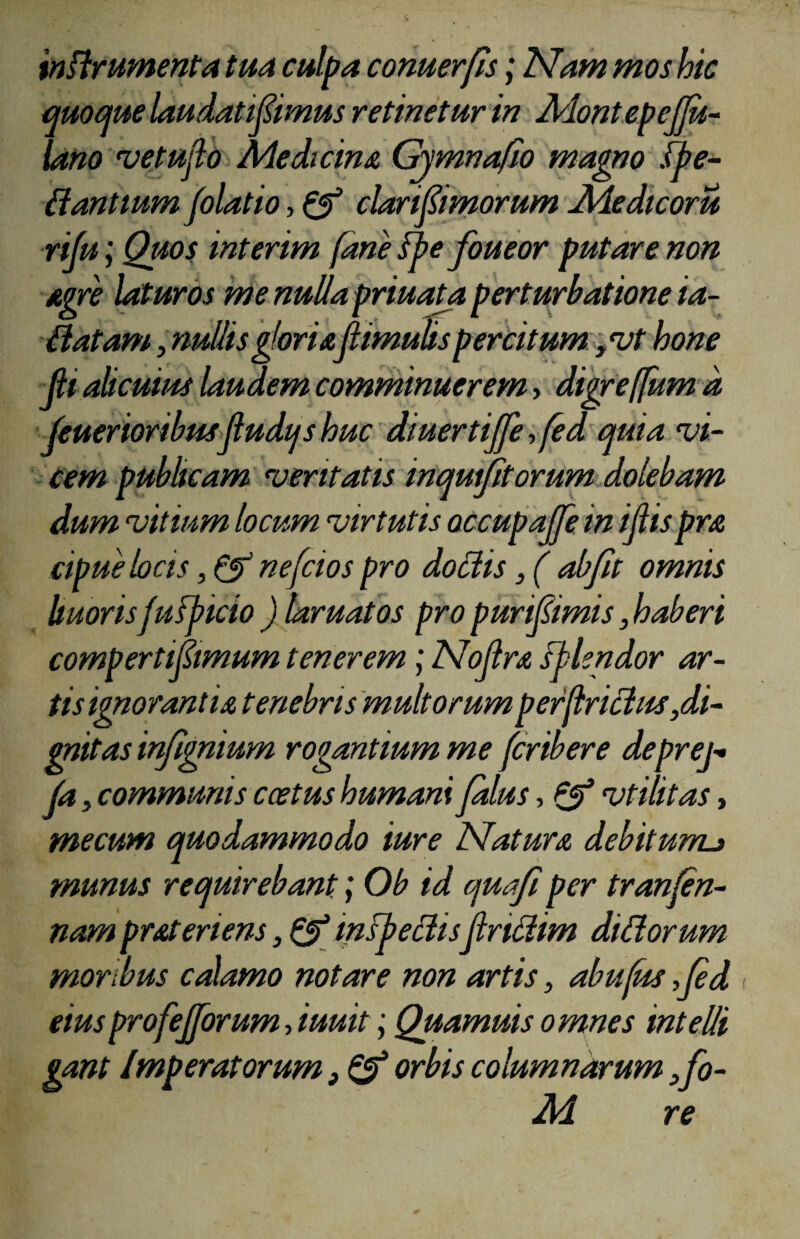 inſtrumenta tua culpa conuerſis; Nam mos hic
quoque laudatiſsimus retinetur in Montepeſſu-
lano vetuſto Medicinæ Gymnaſio magno ſpe-
ctantium ſolatio, & clariſsimorum Medicorū
riſu; Quos interim ſanè ſpe foueor putare non
ægrè laturos me nulla priuata perturbatione ia-
ctatam, nullis gloriæ ſtimulis percitum, vt hone
ſti alicuius laudem comminuerem, digreſſum à
ſeuerioribus ſtudijs huc diuertiſſe, ſed quia vi-
cem publicam veritatis inquiſitorum dolebam
dum vitium locum virtutis occupaſſe in iſtis præ
cipuè locis, & neſcios pro doctis, ( abſit omnis
liuoris ſuſpicio ) laruatos pro puriſsimis, haberi
compertiſsimum tenerem; Noſtræ ſplendor ar-
tis ignorantiæ tenebris multorum perſtrictus, di-
gnitas inſignium rogantium me ſcribere depreſ-
ſa, communis cœtus humani ſalus, & vtilitas,
mecum quodammodo iure Naturæ debitum
munus requirebant; Ob id quaſi per tranſen-
nam præteriens, & inſpectis ſtrictim dictorum
moribus calamo notare non artis, abuſus, ſed
eius profeſſorum, iuuit; Quamuis omnes intelli
gant Imperatorum, & orbis columnarum, fo-
M re